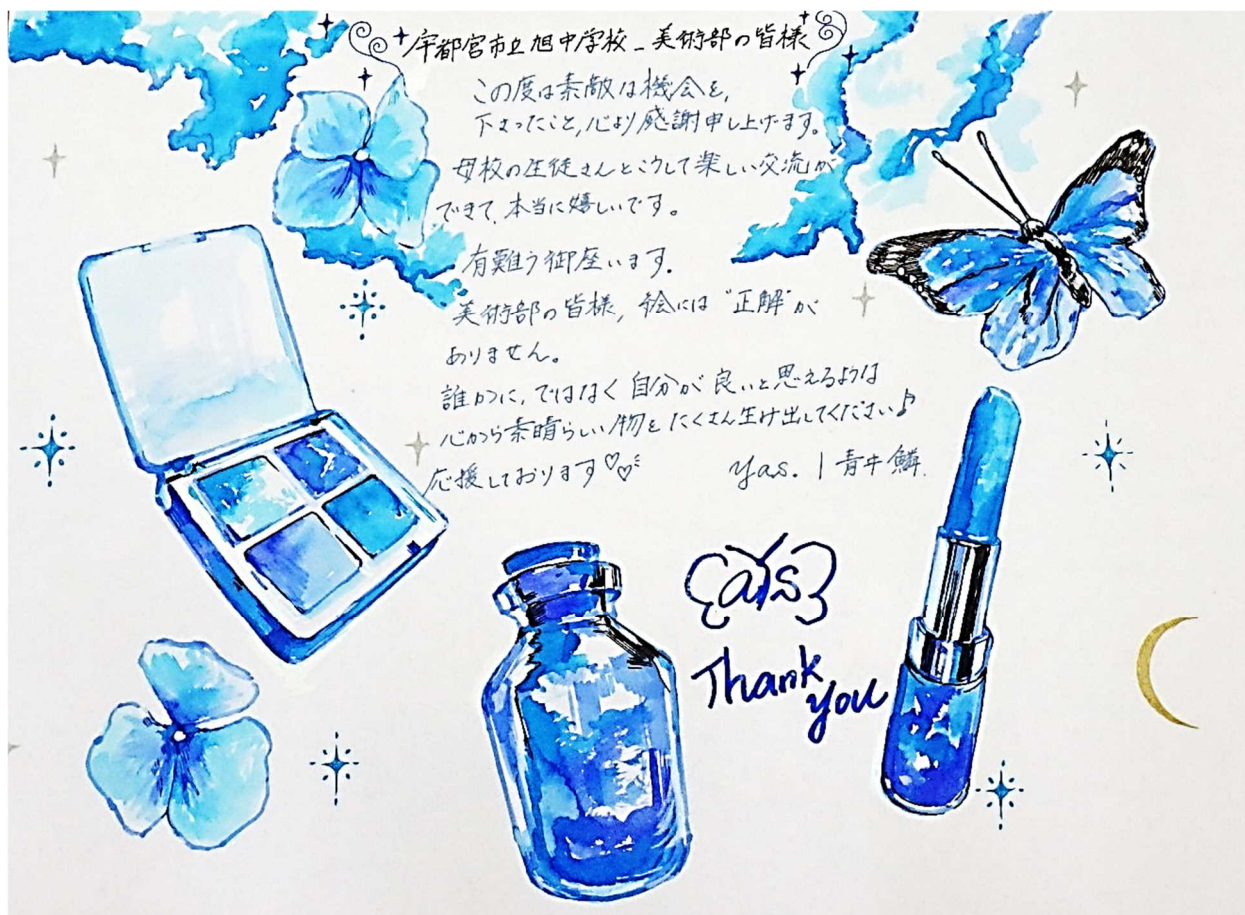 宇都宮市立旭中学校_美術部の皆様
この度は素敵な機会を,
下さったこと,心より感謝申し上げます。
母校の生徒さんとこうして楽しい交流が
できて、本当に嬉しいです。
有難う御座います.
美術部の皆様, 絵には "正解"が
ありません。
誰かに,ではなく自分が良いと思えるような
心から素晴らしい物をたくさん生け出してください♪
応援しております♡♡
yas. | 青牛鱗.
ays
Thank
you